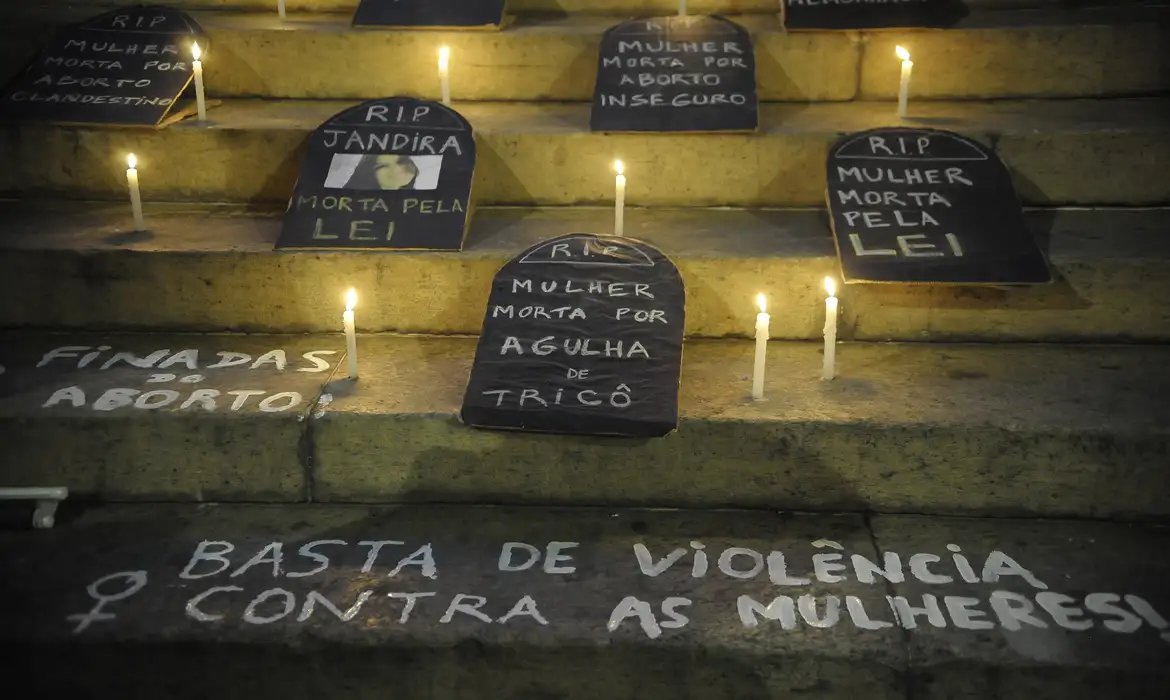 RIP
MULHER
MORTA POR
ABORTO
CLANDESTINO
RIP
MULHER
MORTA POR
ABORTO
INSEGURO
RIP
JANDIRA
MORTA PELA
LEI
RIP
MULHER
MORTA
PELA
LEI
R.I.P
MULHER
MORTA POR
AGULHA
DE
TRICÔ
FINADAS
DO
ABORTO!
BASTA DE VIOLÊNCIA
CONTRA AS MULHERES!